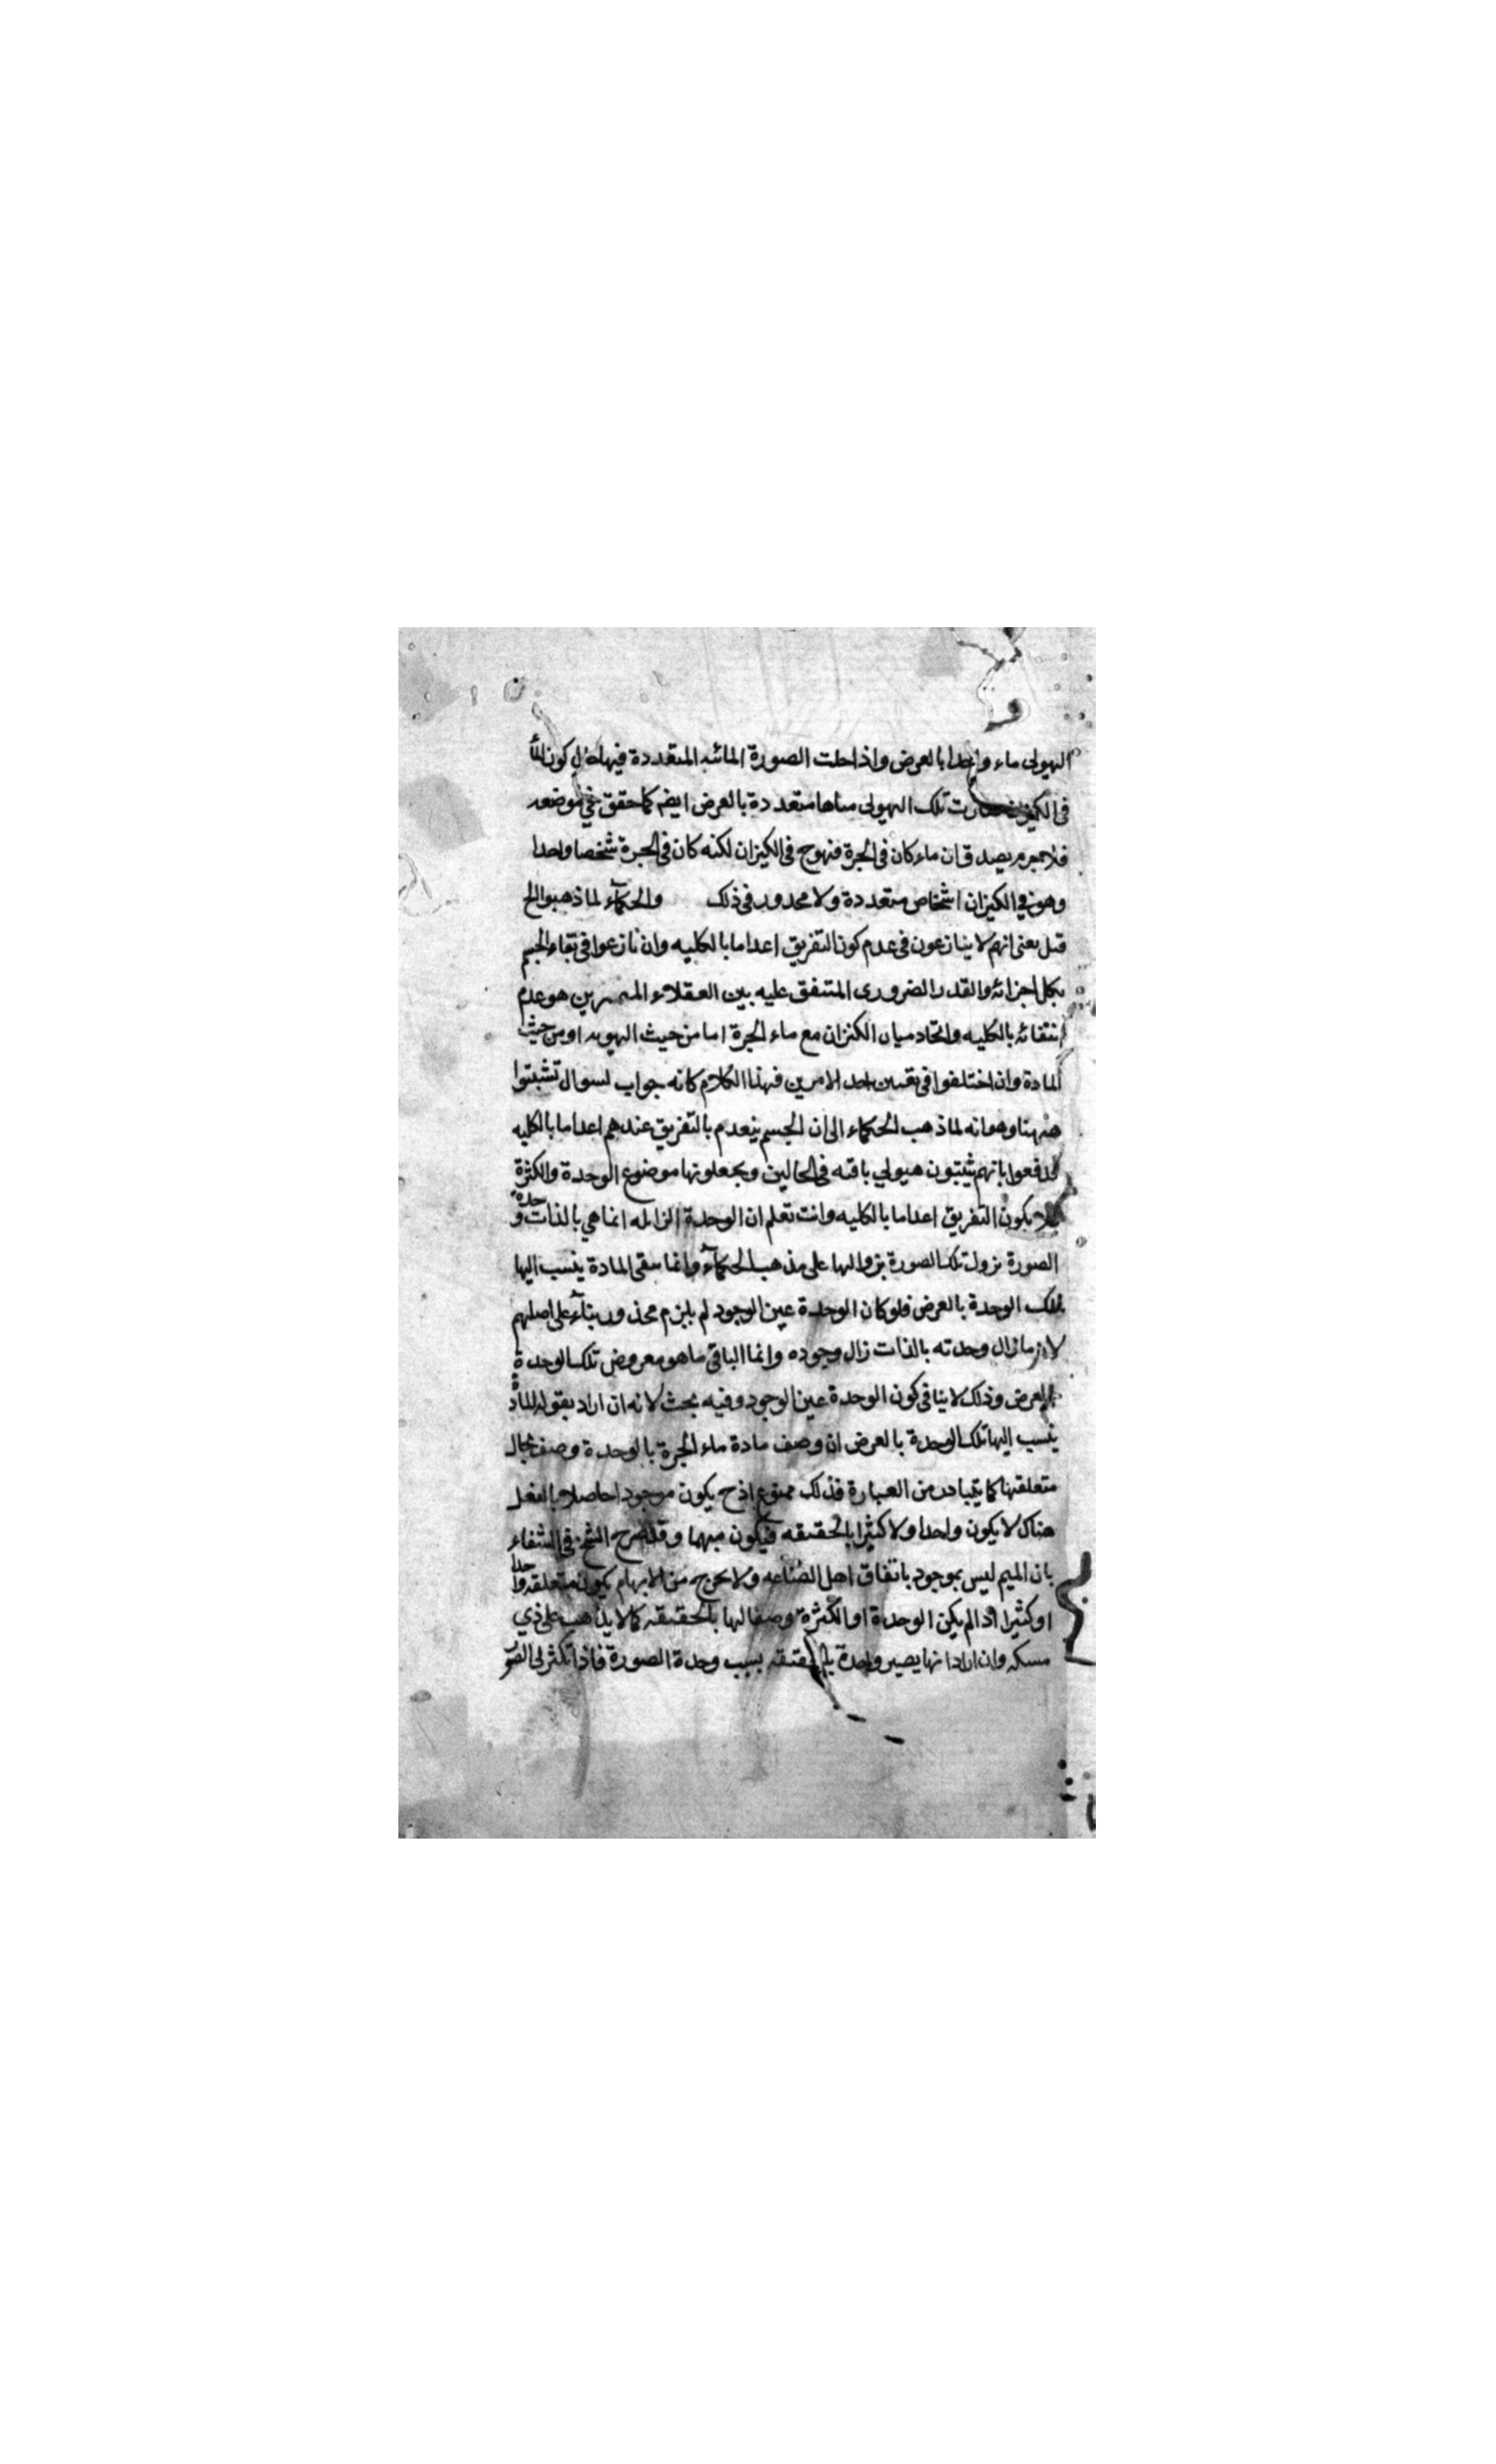 الهيولى ماء واحدا بالعرض واذا حلت الصورة المائيه المتعددة فيها حال كون الماء
فى الكيزان صارت تلك الهيولى مياها متعددة بالعرض ايضم كما حقق في موضعه
فلا جرم يصدق ان ماء كان فى الجرة فهو ح فى الكيزان لكنه كان فى الجرة شخصا واحدا
وهو في الكيزان اشخاص متعددة ولا محذور فى ذلك والحكمآء لما ذهبوا الخ
قيل يعنى انهم لا ينازعون فى عدم كون التفريق اعداما بالكليه وان نازعوا فى بقاء الجسم
بكل اجزائه والقدر الضرورى المتفق عليه بين العقلاء هو عدم
انتفائه بالكليه واتحاد مياه الكيزان مع ماء الجرة اما من حيث الهويه او من حيث
المادة وان اختلفوا فى تعيين احد الامرين فهذا الكلام كانه جواب لسوال تشبثوا
ههنا وهو انه لما ذهب الحكماء الى ان الجسم ينعدم بالتفريق عندهم اعداما بالكليه
فدفعوا بانهم يثبتون هيولي باقيه فى الحالين ويجعلونها موضوع الوحدة والكثرة
فلا يكون التفريق اعداما بالكليه وانت تعلم ان الوحدة الزايله انما هي بالذات وحدة
الصورة تزول تلك الصورة بزوالها على مذهب الحكمآء وانما يبقى المادة ينسب اليها
تلك الوحدة بالعرض فلو كان الوحدة عين الوجود لم يلزم محذور بنآء على اصلهم
لان ما زال وحدته بالذات زال وجوده وانما الباقى ما هو معروض تلك الوحدة
بالعرض وذلك لا ينافى كون الوحدة عين الوجود وفيه بحث لانه ان اراد بقوله المادة
ينسب اليها تلك الوحدة بالعرض ان وصف مادة ماء الجرة بالوحدة وصف بحال
متعلقها كما يتبادر من العبارة فذلك ممنوع اذ ح يكون موجودا حاصلا بالفعل
هناك لا يكون واحدا ولا كثيرا بالحقيقه فيكون مبهما وقد صرح الشيخ فى الشفاء
بان المبهم ليس بموجود باتفاق اهل الصناعه ولا يخرج من الابهام بكون متعلقه واحدا
او كثيرا اذا لم يكن الوحدة او الكثرة وصفا لها بالحقيقه كما لا يذهب على ذي
مسكه وان اراد انها يصير واحدة بالحقيقه بسبب وحدة الصورة فاذا تكثر الصور